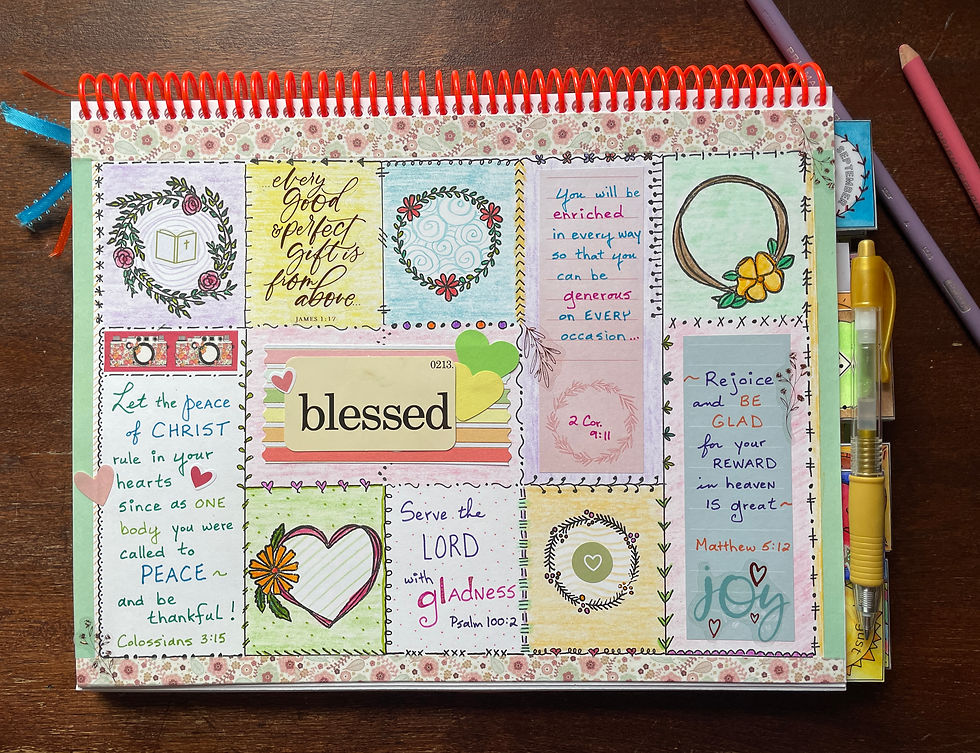 ...every
good
& perfect
gift is
from
above...
JAMES 1:17
You will be
enriched
in every way
so that you
can be
generous
on EVERY
occasion...
2 Cor.
9:11
SEPTEMBER
0213.
blessed
Let the peace
of CHRIST
rule in your
hearts
since as ONE
body you were
called to
PEACE ~
and be
thankful!
Colossians 3:15
Serve the
LORD
with
glADNESS
Psalm 100:2
~ Rejoice
and BE
GLAD
for your
REWARD
in heaven
IS great ~
Matthew 5:12
joy
just